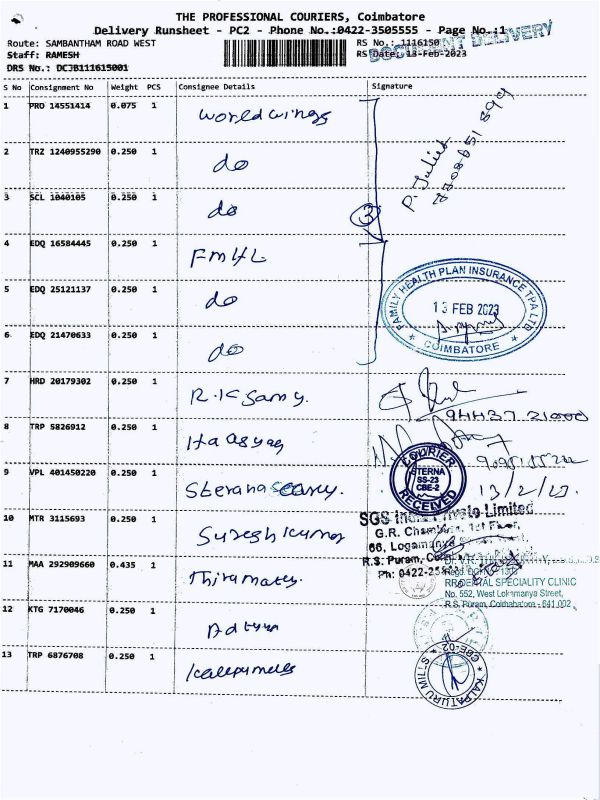 THE PROFESSIONAL COURIERS, Coimbatore
Delivery Runsheet - PC2 - Phone No.:0422-3505555 - Page No.:1
Route: SAMBANTHAM ROAD WEST
RS No.: 1116150
DOCUMENT DELIVERY
Staff: RAMESH
RS Date: 13-Feb-2023
DRS No.: DCJB111615001
S No Consignment No Weight PCS Consignee Details Signature
1 PRD 14551414 0.075 1 World wings
P. Juliet
2 TRZ 1240955290 0.250 1 do
3 SCL 1040105 0.250 1 do
3
4 EDQ 16584445 0.250 1 FMHL
5 EDQ 25121137 0.250 1 do
FAMILY HEALTH PLAN INSURANCE TPA LTD
13 FEB 2023
COIMBATORE
6 EDQ 21470633 0.250 1 do
7 HRD 20179302 0.250 1 R.K Samy.
94437 21000
8 TRP 5826912 0.250 1
9 VPL 401450220 0.250 1
COURIER
STERNA
SS-23
CBE-2
RECEIVED
13/2/23.
10 MTR 3115693 0.250 1 Suresh kumar
SGS India Private Limited
G.R. Chambers, 1st Floor,
66,
R.S. Puram,
Ph: 0422-
11 MAA 292909660 0.435 1
DENTAL SPECIALITY CLINIC
No. 552, West Lokmanya Street,
R.S. Puram, Coimbatore - 641 002
12 KTG 7170046 0.250 1
13 TRP 6876708 0.250 1
CBE-02
KALPATURU MILLS